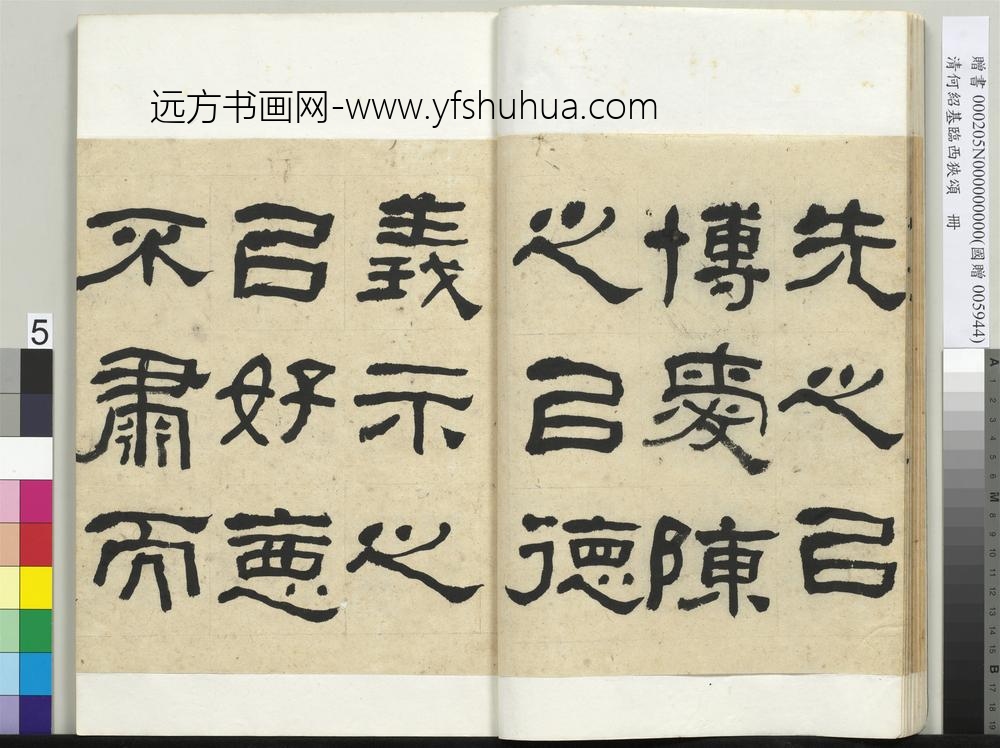 远方书画网-www.yfshuhua.com
贈書 000205N000000000(國贈 005944)
清何紹基臨西狹頌 冊
先之㠯
博愛陳
之㠯德
義示之
㠯好惡
不肅而
5
A 1 2 3 4 5 6 M 8 9 10 11 12 13 14 15 B 17 18 19